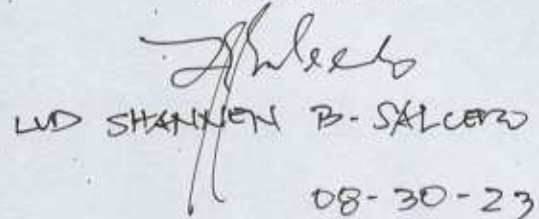 LVD SHANNEN B. SALCEDO
08-30-23